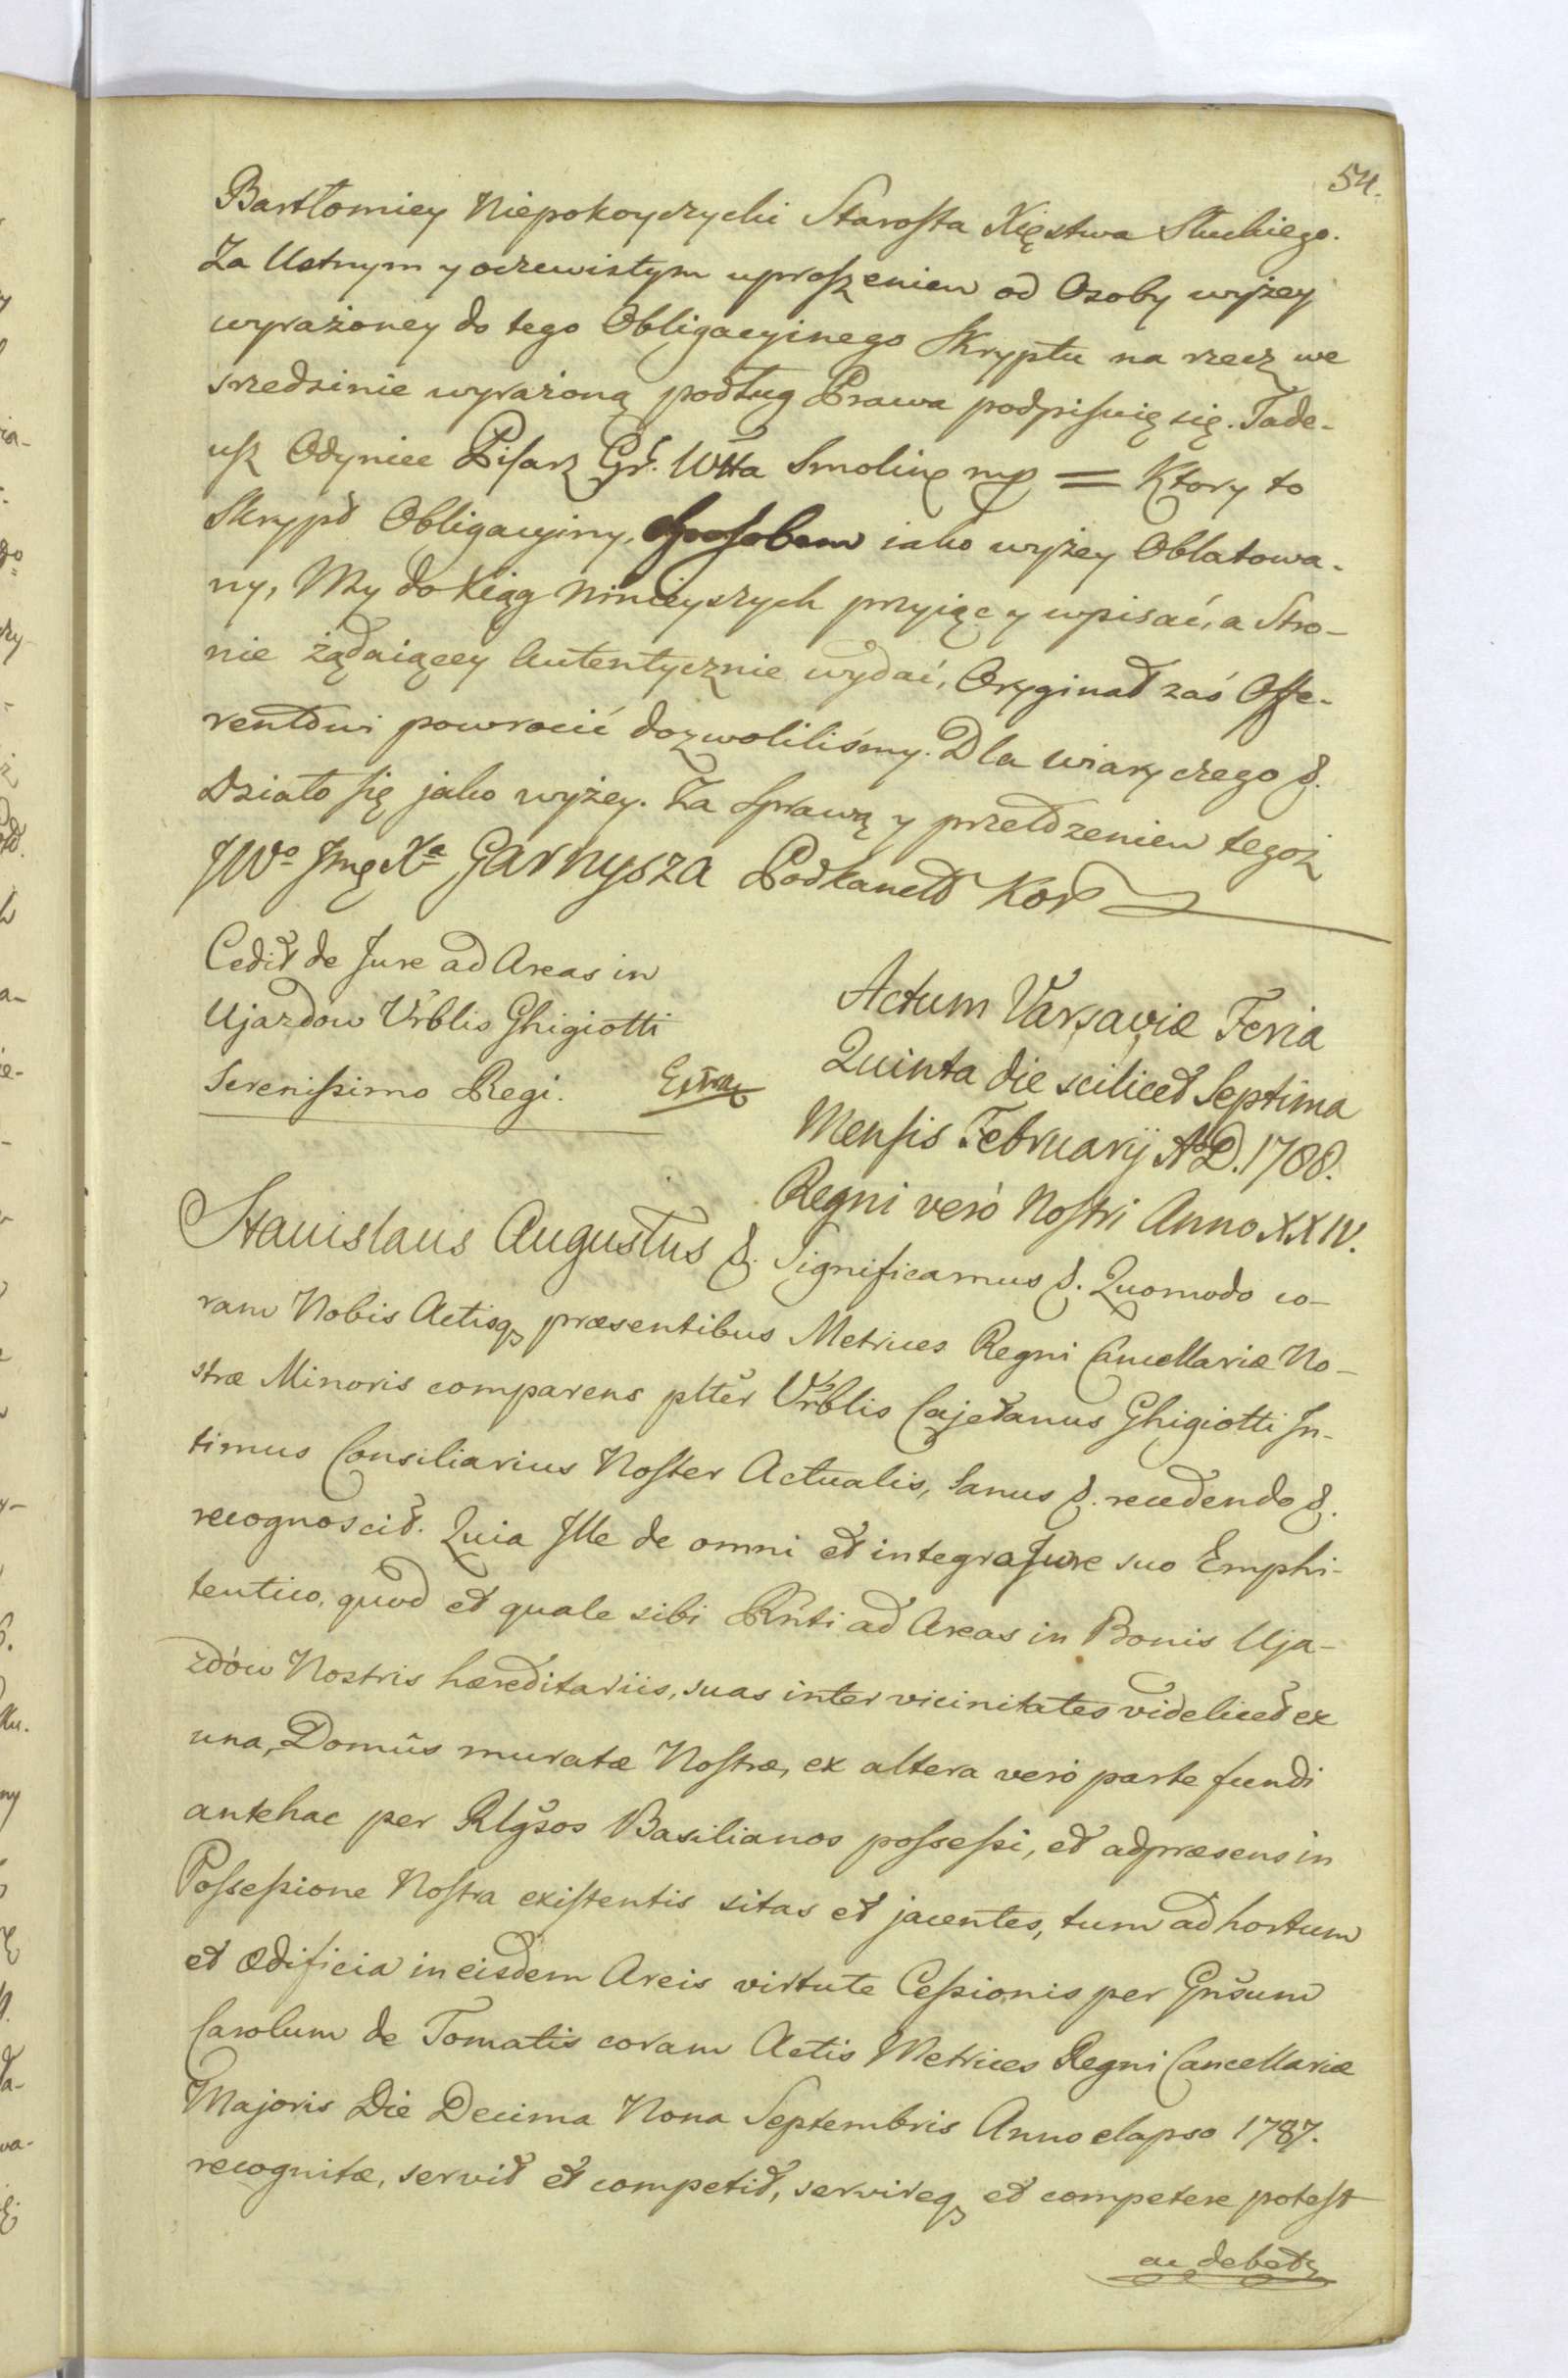 54.
Bartłomiey Niepokoyczycki Starosta Xięstwa Słuckiego.
Za Ustnym y oczewistym uproszeniem od Osoby wyżey
wyrażoney do tego Obligacyinego Skryptu na rzecz we
srzedzinie wyrażoną podług Prawa podpisuię się. Tade-
usz Odyniec Pisarz Gr. Wtta Smolinę mp = Ktory to
Skrypt Obligacyiny, Sposobem iako wyżey Oblatowa-
ny, My do Xiąg Ninieyszych przyiąc y wpisać, a Stro-
nie żądaiącey Autentycznie wydać, Oryginał zaś Offe-
rentowi powrocić dozwoliliśmy. Dla wiary czego &.
Działo się jako wyżey. Za Sprawą y przełożeniem tegoż
JWo Jmę Xa Garnysza Podkancło Kor
Cedit de Jure ad Areas in
Ujazdow Urblis Ghigiotti
Serenissimo Regi. Extra
Actum Varsaviæ Feria
Quinta die scilicet Septima
Mensis Februarij A D. 1788.
Regni verò Nostri Anno XXIV.
Stanislaus Augustus &. Significamus &. Quomodo co-
ram Nobis Actisq, præsentibus Metrices Regni Cancellariæ No-
stræ Minoris comparens plter Urblis Cajetanus Ghigiotti In-
timus Consiliarius Noster Actualis, Sanus &. recedendo &.
recognoscit. Quia Ille de omni et integra Jure suo Emphi-
teutico, quod et quale sibi Rnti ad Areas in Bonis Uja-
zdów Nostris hæreditariis, suas inter vicinitates videlicet ex
una, Domûs muratæ Nostræ, ex altera verò parte fundi
antehac per Rlgsos Basilianos possessi, et adpræsens in
Possessione Nostra existentis sitas et jacentes, tum ad hortum
et Ædificia in eisdem Areis virtute Cessionis per Gnsum
Carolum de Tomatis coram Actis Metrices Regni Cancellariæ
Majoris Die Decima Nona Septembris Anno elapso 1787.
recognitæ, servit et competit, servireq, et competere potest
ac debet,